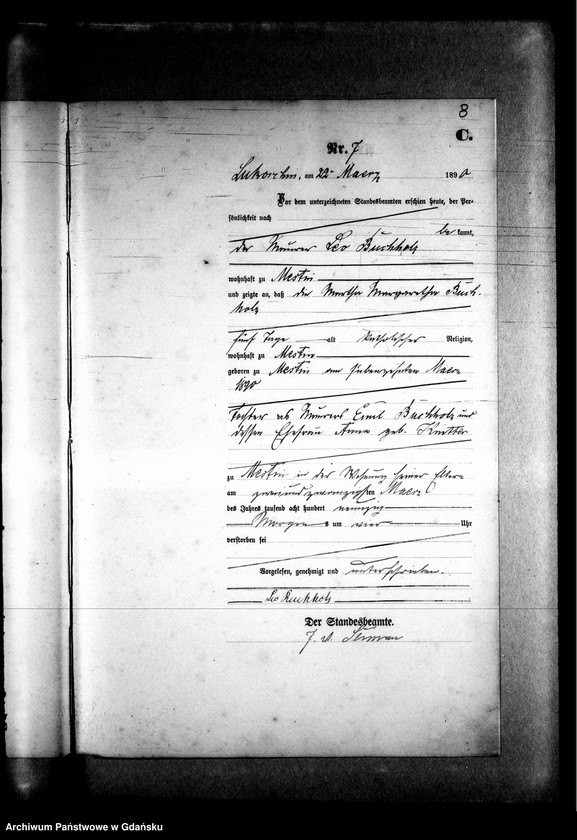 8
C.
Nr. 7
am 22 Maerz 1890
Vor dem unterzeichneten Standesbeamten erschien heute, der Per-
sönlichkeit nach
be kannt,
der Maurer Leo Buchholz
wohnhaft zu Mestin
und zeigte an, daß die Martha Margaretha Buch-
holz
fünf Tage alt katholischer Religion,
wohnhaft zu Mestin
geboren zu Mestin am siebenzehnten Maerz
1890
Tochter des Maurers Emil Buchholz und
dessen Ehefrau Anna geb.
zu Mestin in der Wohnung seiner Eltern
am zweiundzwanzigsten Maerz
des Jahres tausend acht hundert neunzig
Morgens um vier Uhr
verstorben sei
Vorgelesen, genehmigt und unterschrieben.
Leo Buchholz
Der Standesbeamte.
J. v.
Archiwum Państwowe w Gdańsku